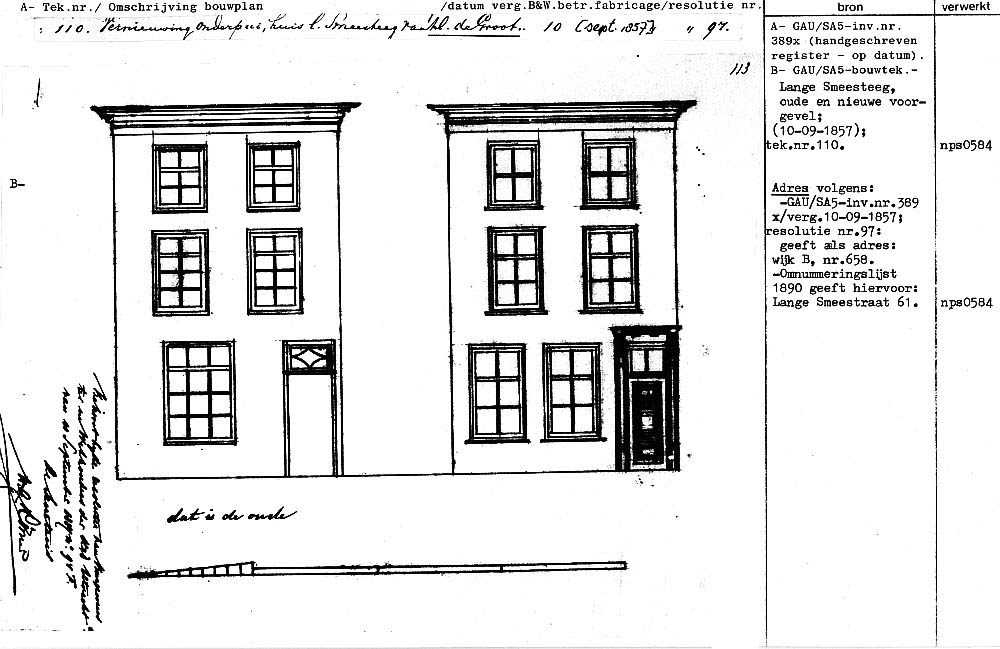 A- Tek.nr./ Omschrijving bouwplan /datum verg.B&W.betr.fabricage/resolutie nr.
110. Vernieuwing onderpui, huis l. Smeesteeg de Groot. 10 (sept. 1857) " 97.
113
B-
dat is de oude
bron
A- GAU/SA5-inv.nr.
389x (handgeschreven
register - op datum).
B- GAU/SA5-bouwtek.-
Lange Smeesteeg,
oude en nieuwe voor-
gevel;
(10-09-1857);
tek.nr.110.
Adres volgens:
-GAU/SA5-inv.nr.389
x/verg.10-09-1857;
resolutie nr.97:
geeft als adres:
wijk B, nr.658.
-Omnummeringslijst
1890 geeft hiervoor:
Lange Smeestraat 61.
verwerkt
nps0584
nps0584